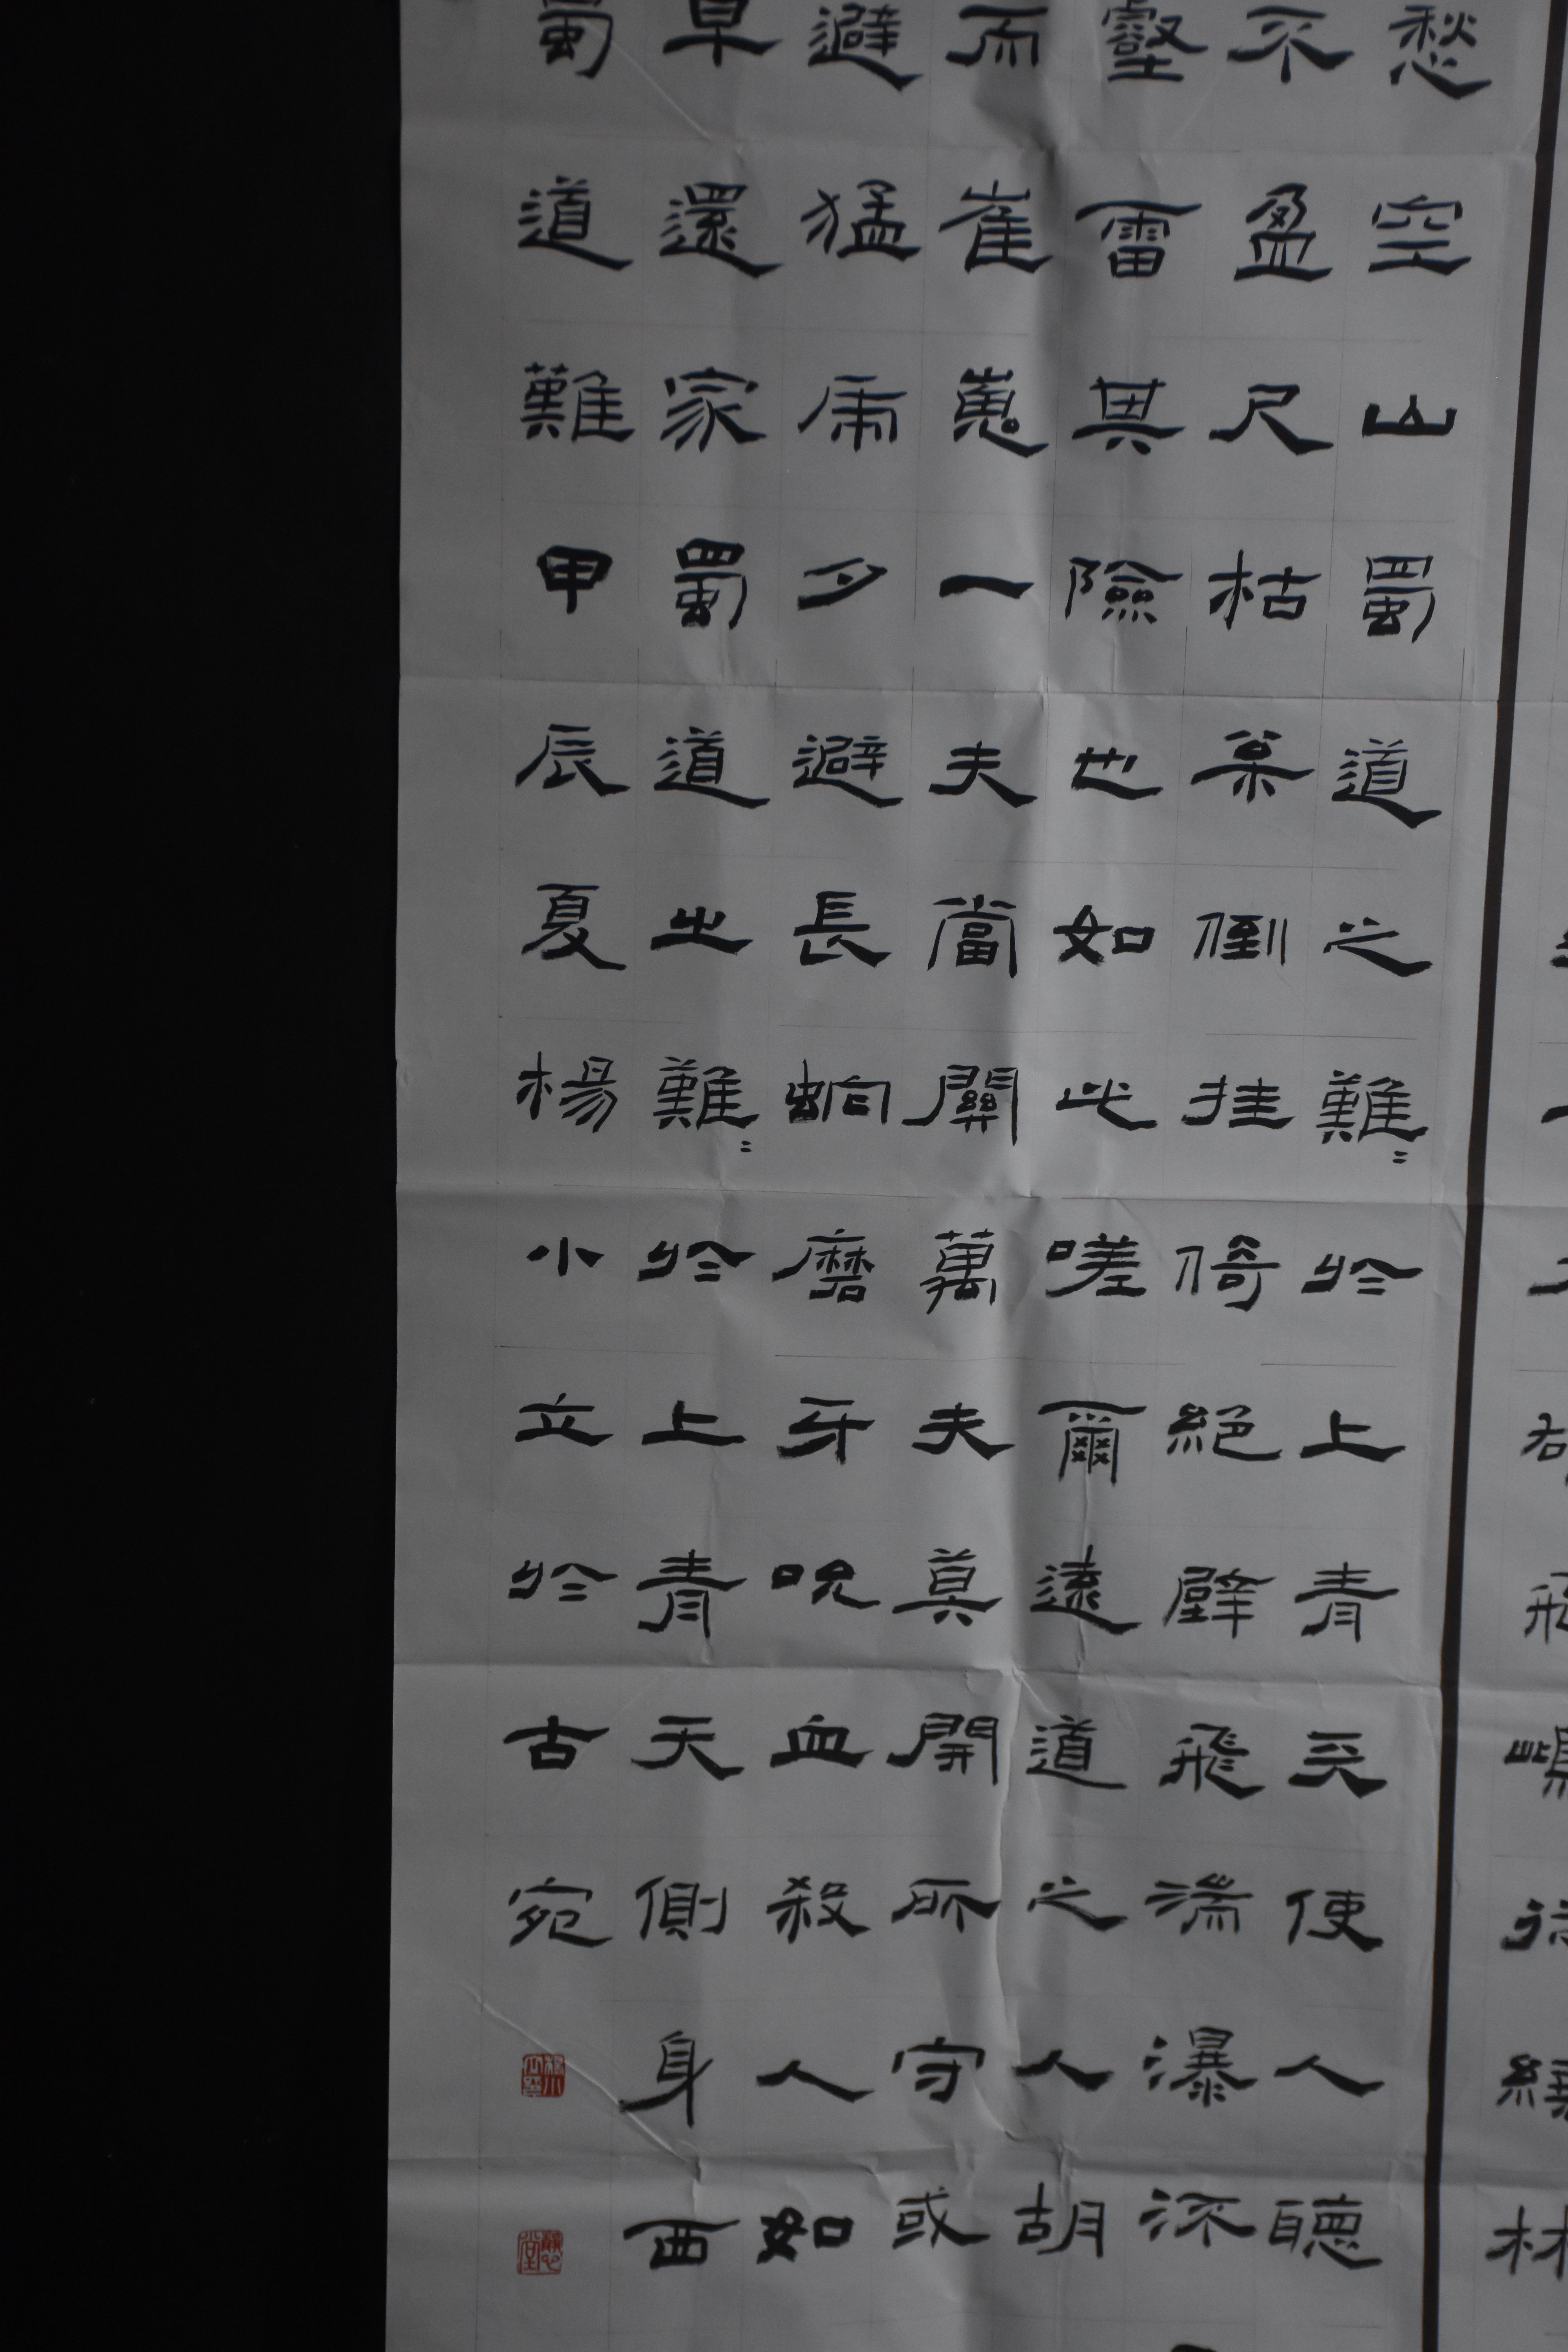 愁空山蜀道之難〻於上青天使人聽
不盈尺枯枀倒挂倚絕壁飛湍瀑流
壑雷其險也如此嗟爾遠道之人胡
而崔嵬一夫當關萬夫莫開所守或
避猛虎夕避長蛇磨牙吮血殺人如
早還家蜀道之難〻於上青天側身西
蜀道難甲辰夏楊小立於古宛